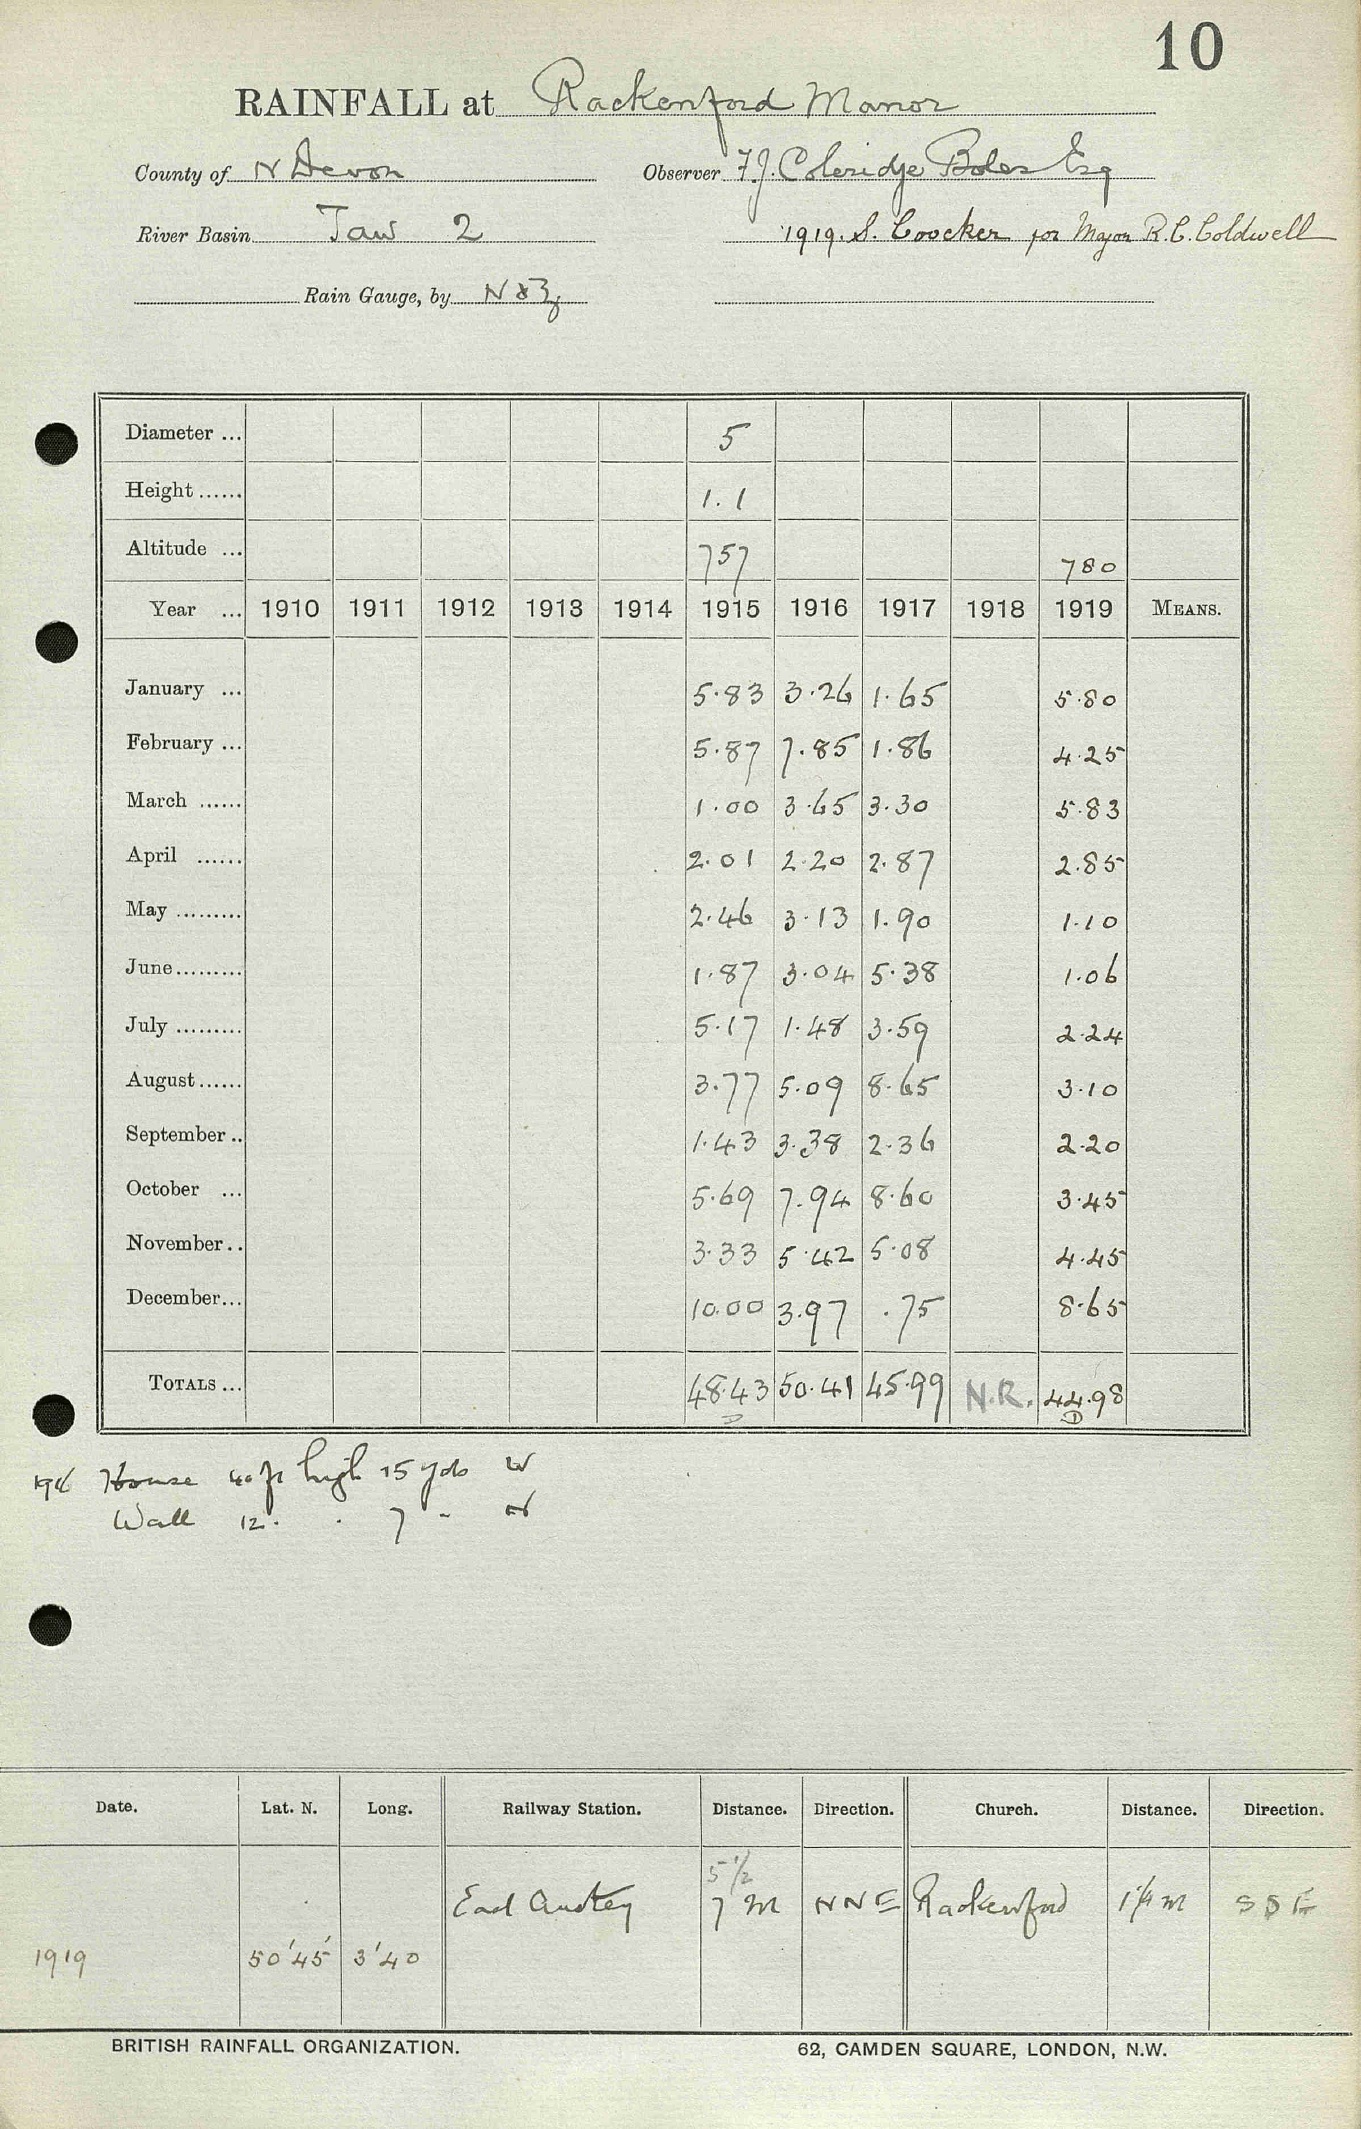 10
RAINFALL at Rackenford Manor
County of N Devon Observer F.J. Coleridge Boles Esq
River Basin Taw 2 1919. S. Coocker for Major R.C. Coldwell
Rain Gauge, by N & Z
Diameter ... 5
Height ...... 1.1
Altitude ... 757 780
Year ... 1910 1911 1912 1913 1914 1915 1916 1917 1918 1919 MEANS.
January ... 5.83 3.26 1.65 5.80
February ... 5.87 7.85 1.86 4.25
March ...... 1.00 3.65 3.30 5.83
April ...... 2.01 2.20 2.87 2.85
May ......... 2.46 3.13 1.90 1.10
June......... 1.87 3.04 5.38 1.06
July ......... 5.17 1.48 3.59 2.24
August...... 3.77 5.09 8.65 3.10
September .. 1.43 3.38 2.36 2.20
October ... 5.69 7.94 8.60 3.45
November.. 3.33 5.42 5.08 4.45
December... 10.00 3.97 .75 8.65
TOTALS ... 48.43 50.41 45.99 N.R. 44.98
D D
House 40 ft high 15 yds W
Wall 12 . . 7 " N
Date. Lat. N. Long. Railway Station. Distance. Direction. Church. Distance. Direction.
5 1/2
East Anstey 7 m NNE Rackenford 1 1/4 m SSE
1919 50°45' 3°40
BRITISH RAINFALL ORGANIZATION. 62, CAMDEN SQUARE, LONDON, N.W.